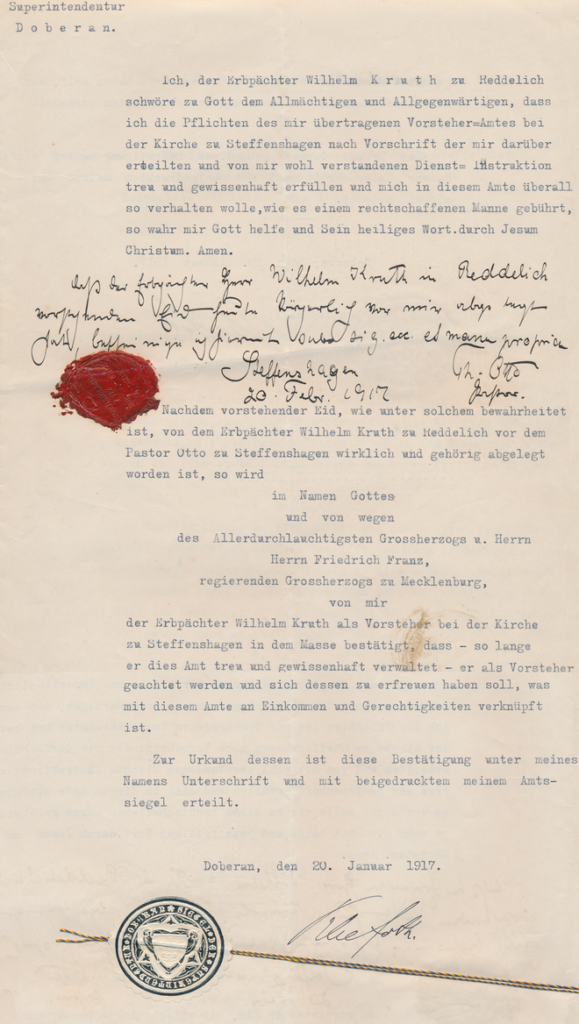 Superintendentur
Doberan.
Ich, der Erbpächter Wilhelm Kruth zu Reddelich
schwöre zu Gott dem Allmächtigen und Allgegenwärtigen, dass
ich die Pflichten des mir übertragenen Vorsteher=Amtes bei
der Kirche zu Steffenshagen nach Vorschrift der mir darüber
erteilten und von mir wohl verstandenen Dienst= Instruktion
treu und gewissenhaft erfüllen und mich in diesem Amte überall
so verhalten wolle,wie es einem rechtschaffenen Manne gebührt,
so wahr mir Gott helfe und Sein heiliges Wort.durch Jesum
Christum. Amen.
daß der Erbpächter Herr Wilhelm Kruth in Reddelich
vorstehenden Eid heute körperlich vor mir abgelegt
hat, bescheinige ich hiermit sub sig. et manu propria
Steffenshagen Th. Otto
20. Febr. 1917 Pastor.
Nachdem vorstehender Eid, wie unter solchem bewahrheitet
ist, von dem Erbpächter Wilhelm Kruth zu Reddelich vor dem
Pastor Otto zu Steffenshagen wirklich und gehörig abgelegt
worden ist, so wird
im Namen Gottes
und von wegen
des Allerdurchlauchtigsten Grossherzogs u. Herrn
Herrn Friedrich Franz,
regierenden Grossherzogs zu Mecklenburg,
von mir
der Erbpächter Wilhelm Kruth als Vorsteher bei der Kirche
zu Steffenshagen in dem Masse bestätigt, dass - so lange
er dies Amt treu und gewissenhaft verwaltet - er als Vorsteher
geachtet werden und sich dessen zu erfreuen haben soll, was
mit diesem Amte an Einkommen und Gerechtigkeiten verknüpft
ist.
Zur Urkund dessen ist diese Bestätigung unter meines
Namens Unterschrift und mit beigedrucktem meinem Amts-
siegel erteilt.
Doberan, den 20. Januar 1917.